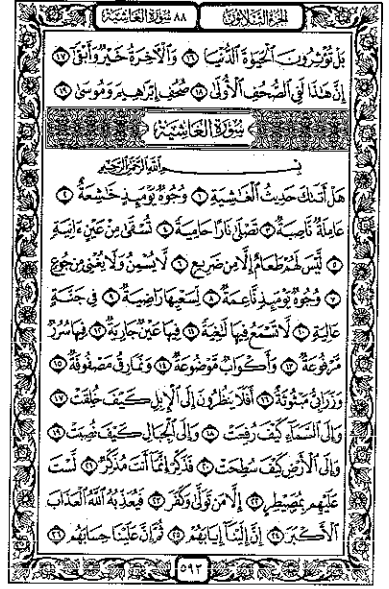 الجزء الثلاثون ٨٨ سورة الغاشية
بَلْ تُؤْثِرُونَ ٱلْحَيَوٰةَ ٱلدُّنْيَا ١٦ وَٱلْأَخِرَةُ خَيْرٌ وَأَبْقَىٰٓ ١٧
إِنَّ هَٰذَا لَفِى ٱلصُّحُفِ ٱلْأُولَىٰ ١٨ صُحُفِ إِبْرَٰهِيمَ وَمُوسَىٰ ١٩
سُورَةُ الغَاشِيَةِ
بِسْمِ ٱللَّهِ ٱلرَّحْمَٰنِ ٱلرَّحِيمِ
هَلْ أَتَىٰكَ حَدِيثُ ٱلْغَٰشِيَةِ ١ وُجُوهٌ يَوْمَئِذٍ خَٰشِعَةٌ ٢
عَامِلَةٌ نَّاصِبَةٌ ٣ تَصْلَىٰ نَارًا حَامِيَةً ٤ تُسْقَىٰ مِنْ عَيْنٍ ءَانِيَةٍ
٥ لَّيْسَ لَهُمْ طَعَامٌ إِلَّا مِن ضَرِيعٍ ٦ لَّا يُسْمِنُ وَلَا يُغْنِى مِن جُوعٍ
٧ وُجُوهٌ يَوْمَئِذٍ نَّاعِمَةٌ ٨ لِّسَعْيِهَا رَاضِيَةٌ ٩ فِى جَنَّةٍ
عَالِيَةٍ ١٠ لَّا تَسْمَعُ فِيهَا لَٰغِيَةً ١١ فِيهَا عَيْنٌ جَارِيَةٌ ١٢ فِيهَا سُرُرٌ
مَّرْفُوعَةٌ ١٣ وَأَكْوَابٌ مَّوْضُوعَةٌ ١٤ وَنَمَارِقُ مَصْفُوفَةٌ ١٥
وَزَرَابِىُّ مَبْثُوثَةٌ ١٦ أَفَلَا يَنظُرُونَ إِلَى ٱلْإِبِلِ كَيْفَ خُلِقَتْ ١٧
وَإِلَى ٱلسَّمَآءِ كَيْفَ رُفِعَتْ ١٨ وَإِلَى ٱلْجِبَالِ كَيْفَ نُصِبَتْ ١٩
وَإِلَى ٱلْأَرْضِ كَيْفَ سُطِحَتْ ٢٠ فَذَكِّرْ إِنَّمَآ أَنتَ مُذَكِّرٌ ٢١ لَّسْتَ
عَلَيْهِم بِمُصَيْطِرٍ ٢٢ إِلَّا مَن تَوَلَّىٰ وَكَفَرَ ٢٣ فَيُعَذِّبُهُ ٱللَّهُ ٱلْعَذَابَ
ٱلْأَكْبَرَ ٢٤ إِنَّ إِلَيْنَآ إِيَابَهُمْ ٢٥ ثُمَّ إِنَّ عَلَيْنَا حِسَابَهُم ٢٦
٥٩٢